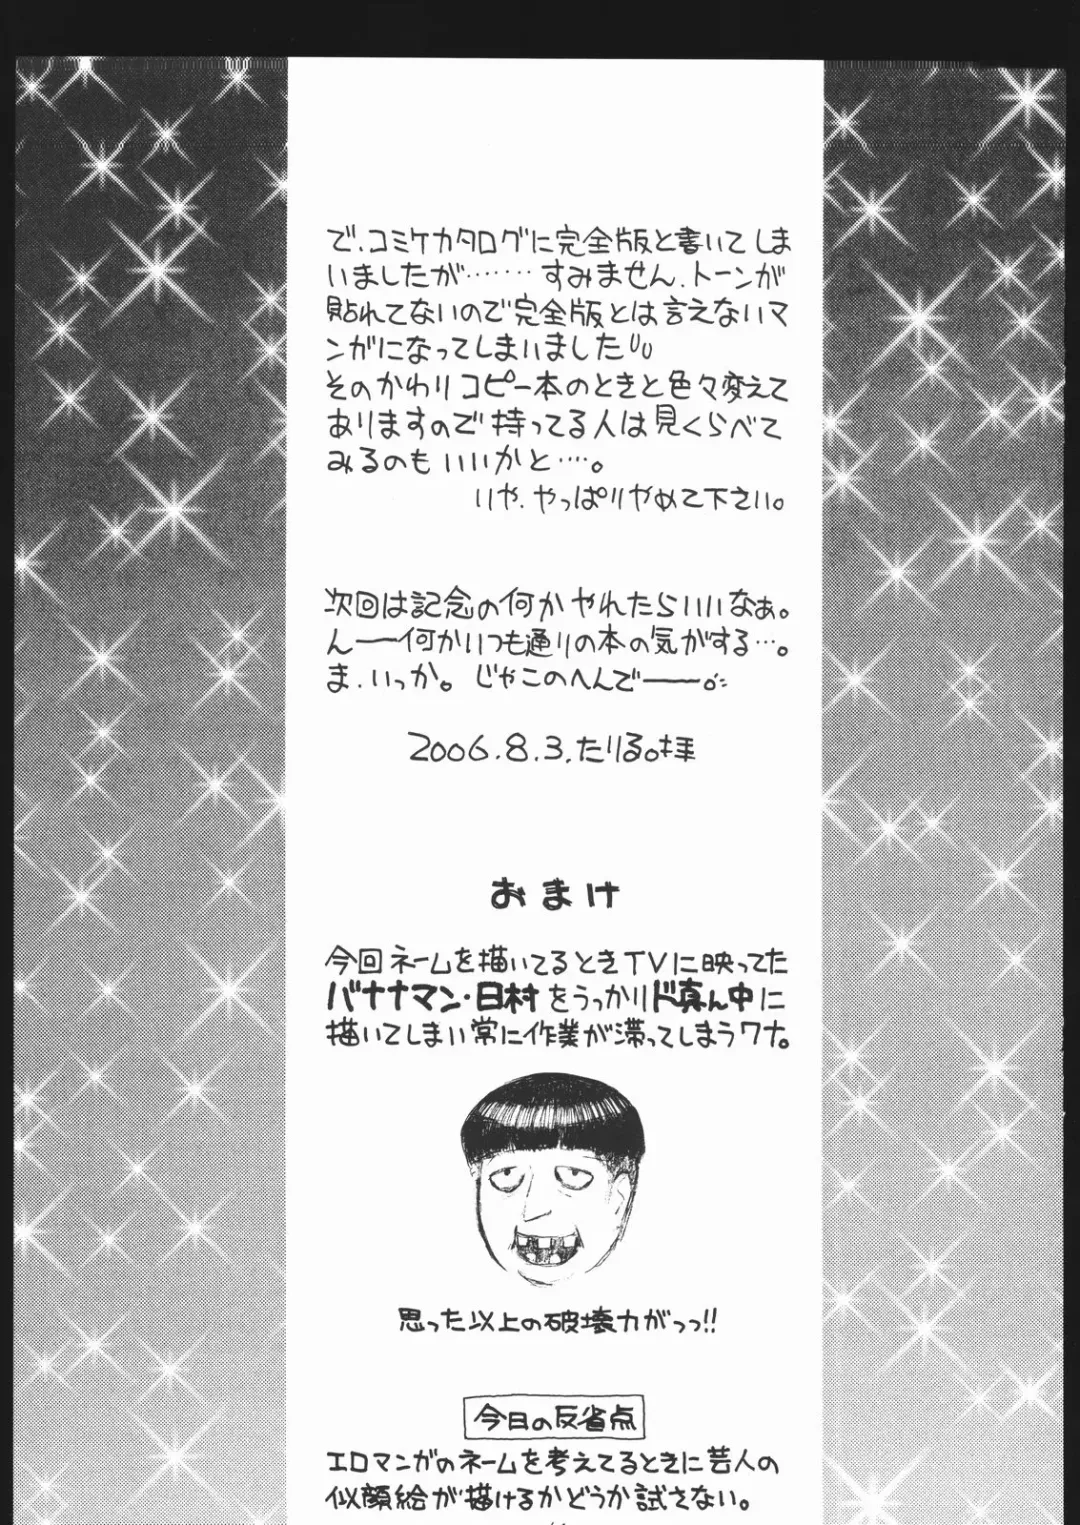 で、コミケカタログに完全版と書いてしま
いましたが……… すみません、トーンが
貼れてないので完全版とは言えないマ
ンガになってしまいました
そのかわりコピー本のときと色々変えて
ありますので持ってる人は見くらべて
みるのもいいかと…。
いや、やっぱりやめて下さい。
次回は記念の何かやれたらいいなぁ。
んー何かいつも通りの本の気がする…。
ま、いっか。じゃこのへんでー。
2006.8.3.たりる。拝
おまけ
今回ネームを描いてるときTVに映ってた
バナナマン・日村をうっかりド真ん中に
描いてしまい常に作業が滞ってしまうワナ。
思った以上の破壊力がっっ!!
今日の反省点
エロマンガのネームを考えてるときに芸人の
似顔絵が描けるかどうか試さない。